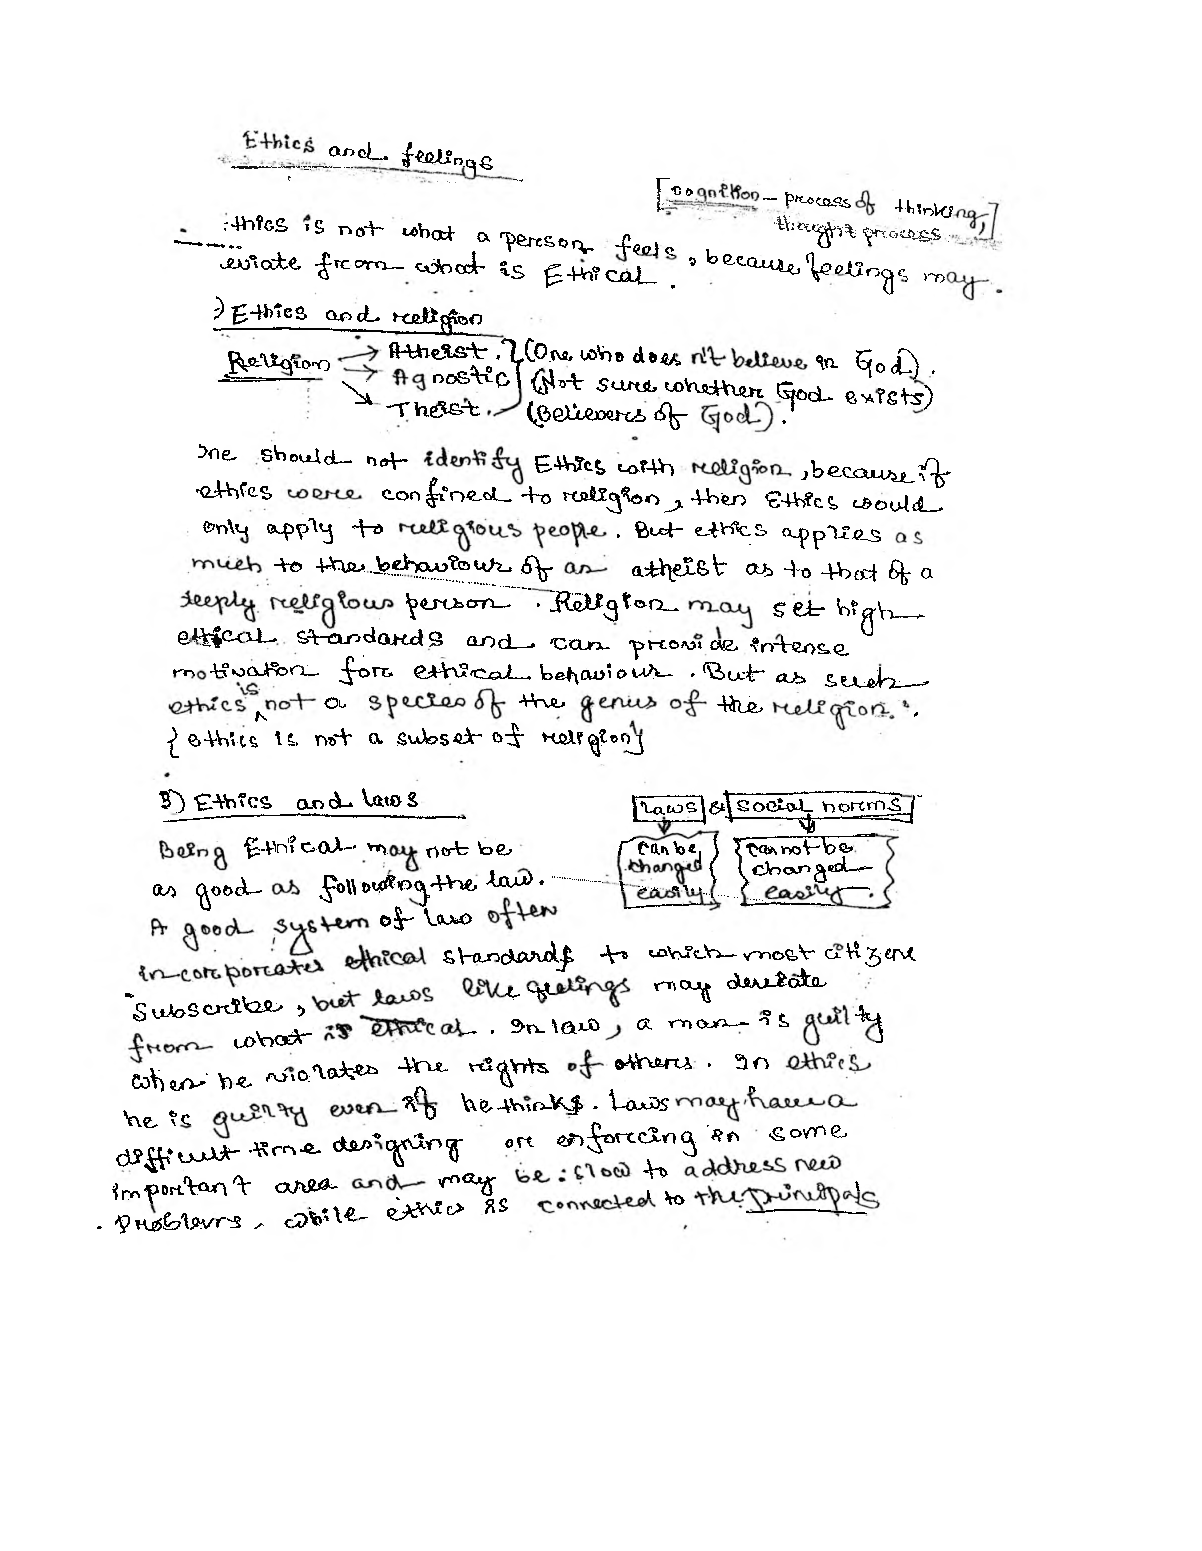 Ethics and feelings
[cognition - process of thinking,
thought process]
thics is not what a person feels, because feelings may
eviate from what is Ethical.
) Ethics and religion
Religion → Atheist. (One who does n't believe in God).
→ Agnostic (Not sure whether God exists)
→ Theist. (Believers of God).
ne should not identify Ethics with religion, because if
ethics were confined to religion, then Ethics would
only apply to religious people. But ethics applies as
much to the behaviour of an atheist as to that of a
deeply religious person. Religion may set high
ethical standards and can provide intense
motivation for ethical behaviour. But as such
ethics is not a species of the genus of the religion.
{ethics is not a subset of religion}
3) Ethics and laws
Laws & social norms
can be
changed
easily
cannot be
changed
easily.
Being Ethical may not be
as good as following the law.
A good system of law often
incorporates ethical standards to which most citizens
subscribe, but laws like feelings may deviate
from what is ethical. In law, a man is guilty
when he violates the rights of others. In ethics
he is guilty even if he thinks. Laws may have a
difficult time designing or enforcing in some
important area and may be slow to address new
problems, while ethics is connected to the principals